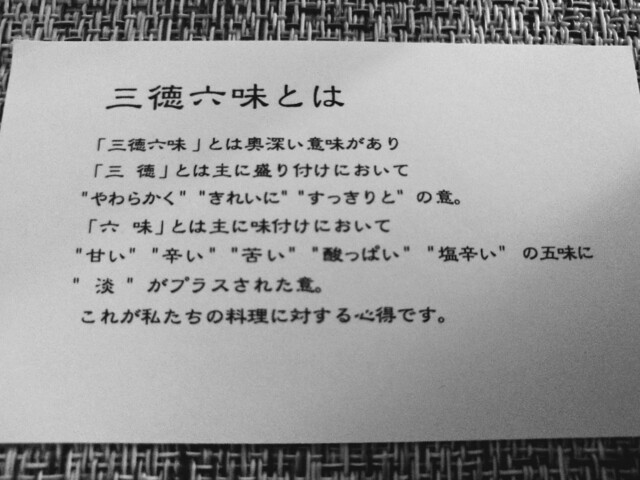 三徳六味とは
「三徳六味」とは奥深い意味があり
「三 徳」とは主に盛り付けにおいて
"やわらかく" "きれいに" "すっきりと" の意。
「六 味」とは主に味付けにおいて
"甘い" "辛い" "苦い" "酸っぱい" "塩辛い" の五味に
" 淡 " がプラスされた意。
これが私たちの料理に対する心得です。